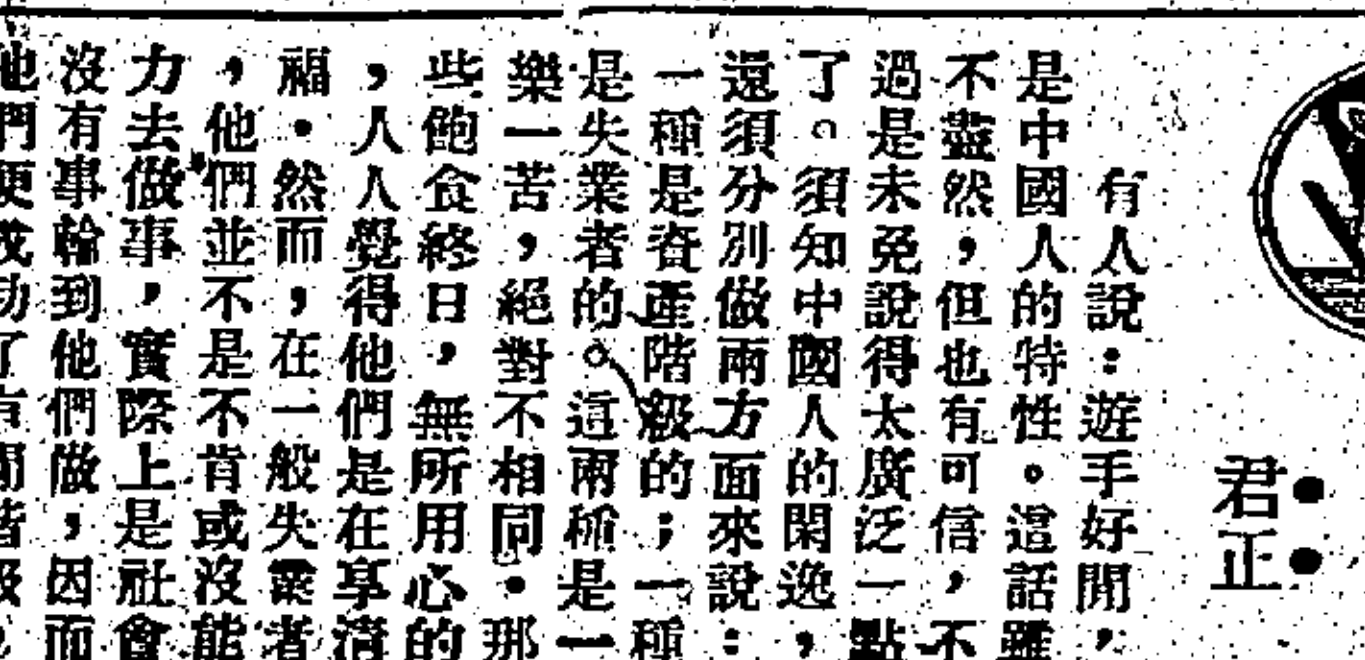 君正
有人說：遊手好閒，
是中國人的特性。這話雖
不盡然，但也有可信，不
過是未免說得太廣泛一點
了。須知中國人的閑逸，
還須分別做兩方面來說：
一種是資產階級的；一種
是失業者的。這兩種是一
樂一苦，絕對不相同。那
些飽食終日，無所用心的
，人人覺得他們是在享清
福。然而，在一般失業者
，他們並不是不肯或沒能
力去做事，實際上是社會
沒有事輪到他們做，因而
他們便成功了有閒階級，